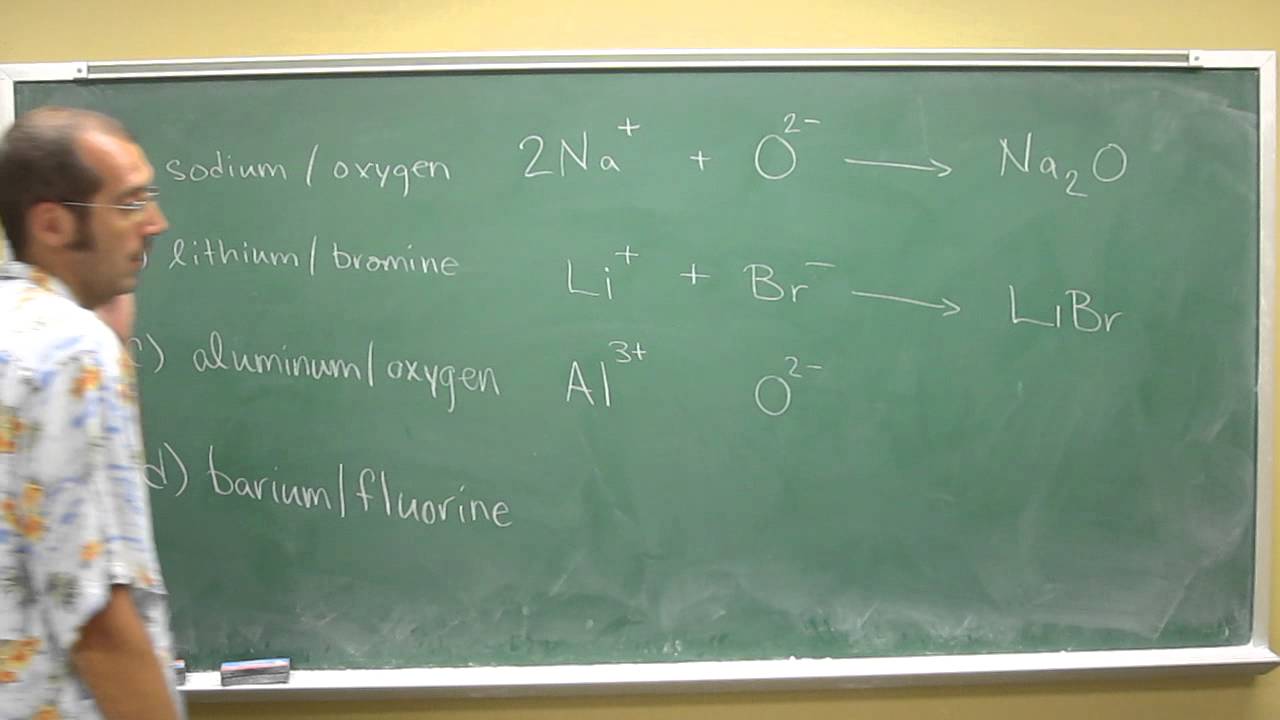 sodium / oxygen 2Na⁺ + O²⁻ ⟶ Na₂O
) lithium / bromine Li⁺ + Br⁻ ⟶ LiBr
c) aluminum / oxygen Al³⁺ O²⁻
d) barium / fluorine